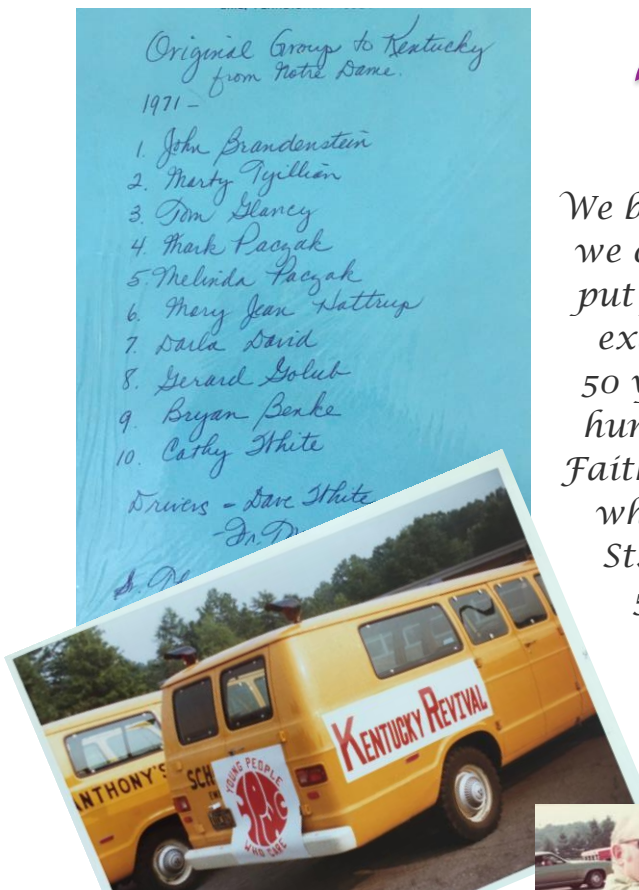 Original Group to Kentucky
from Notre Dame.
1971 –
1. John Brandenstein
2. Marty Tyillian
3. Tom Glancy
4. Mark Paczak
5. Melinda Paczak
6. Mary Jean Hattrup
7. Darla David
8. Gerard Golub
9. Bryan Benke
10. Cathy White
Drivers – Dave White
- Fr.
Sr.
We b
we
put
ex
50 y
hun
Faith
wh
St.
5
ANTHONY'S
SCH
YOUNG PEOPLE
WHO CARE
KENTUCKY REVIVAL